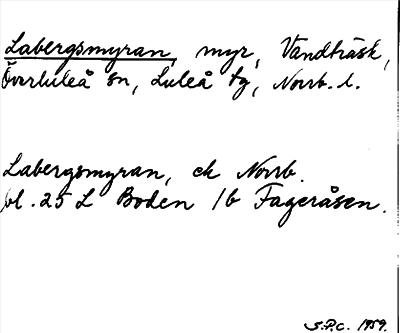 Labergsmyran, myr, Vändträsk,
Överluleå sn, Luleå tg, Norrb. l.
Labergsmyran, ek Norrb.
bl. 25 L Boden 1b Fageråsen.
S.P.C. 1959.